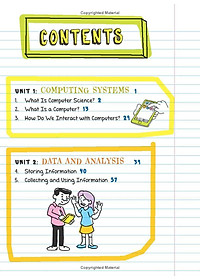 Copyrighted Material
CONTENTS
UNIT 1: COMPUTING SYSTEMS 1
1. What Is Computer Science? 2
2. What Is a Computer? 13
3. How Do We Interact with Computers? 23
UNIT 2: DATA AND ANALYSIS 39
4. Storing Information 40
5. Collecting and Using Information 57
Copyrighted Material